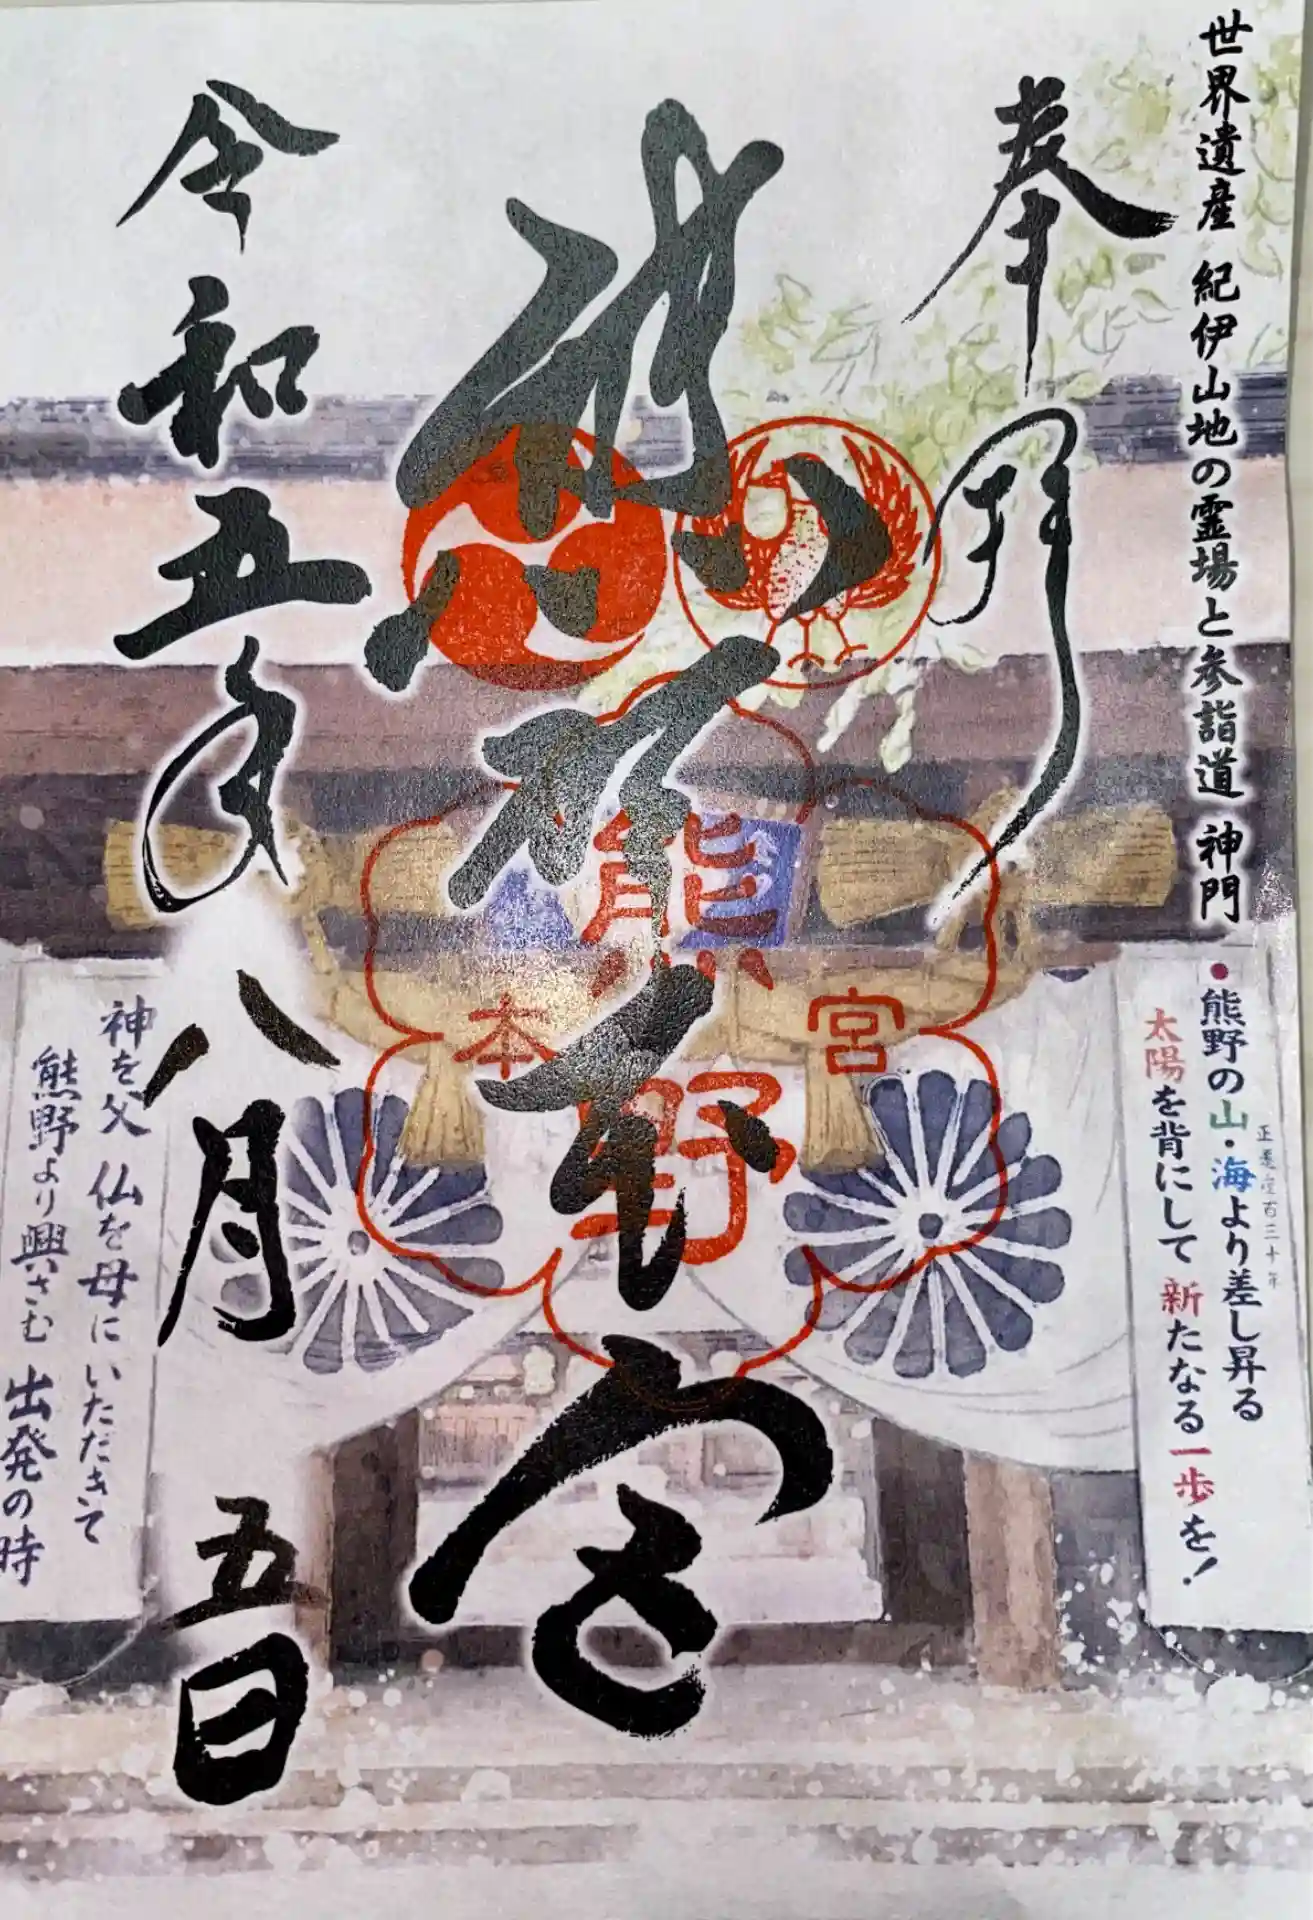 世界遺産 紀伊山地の霊場と参詣道 神門
正遷座百三十年
●熊野の山・海より差し昇る
太陽を背にして 新たなる一歩を!
奉拝
熊野本宮
熊野
本
宮
令和五年八月五日
神を父 仏を母に いただきて
熊野より興さむ 出発の時